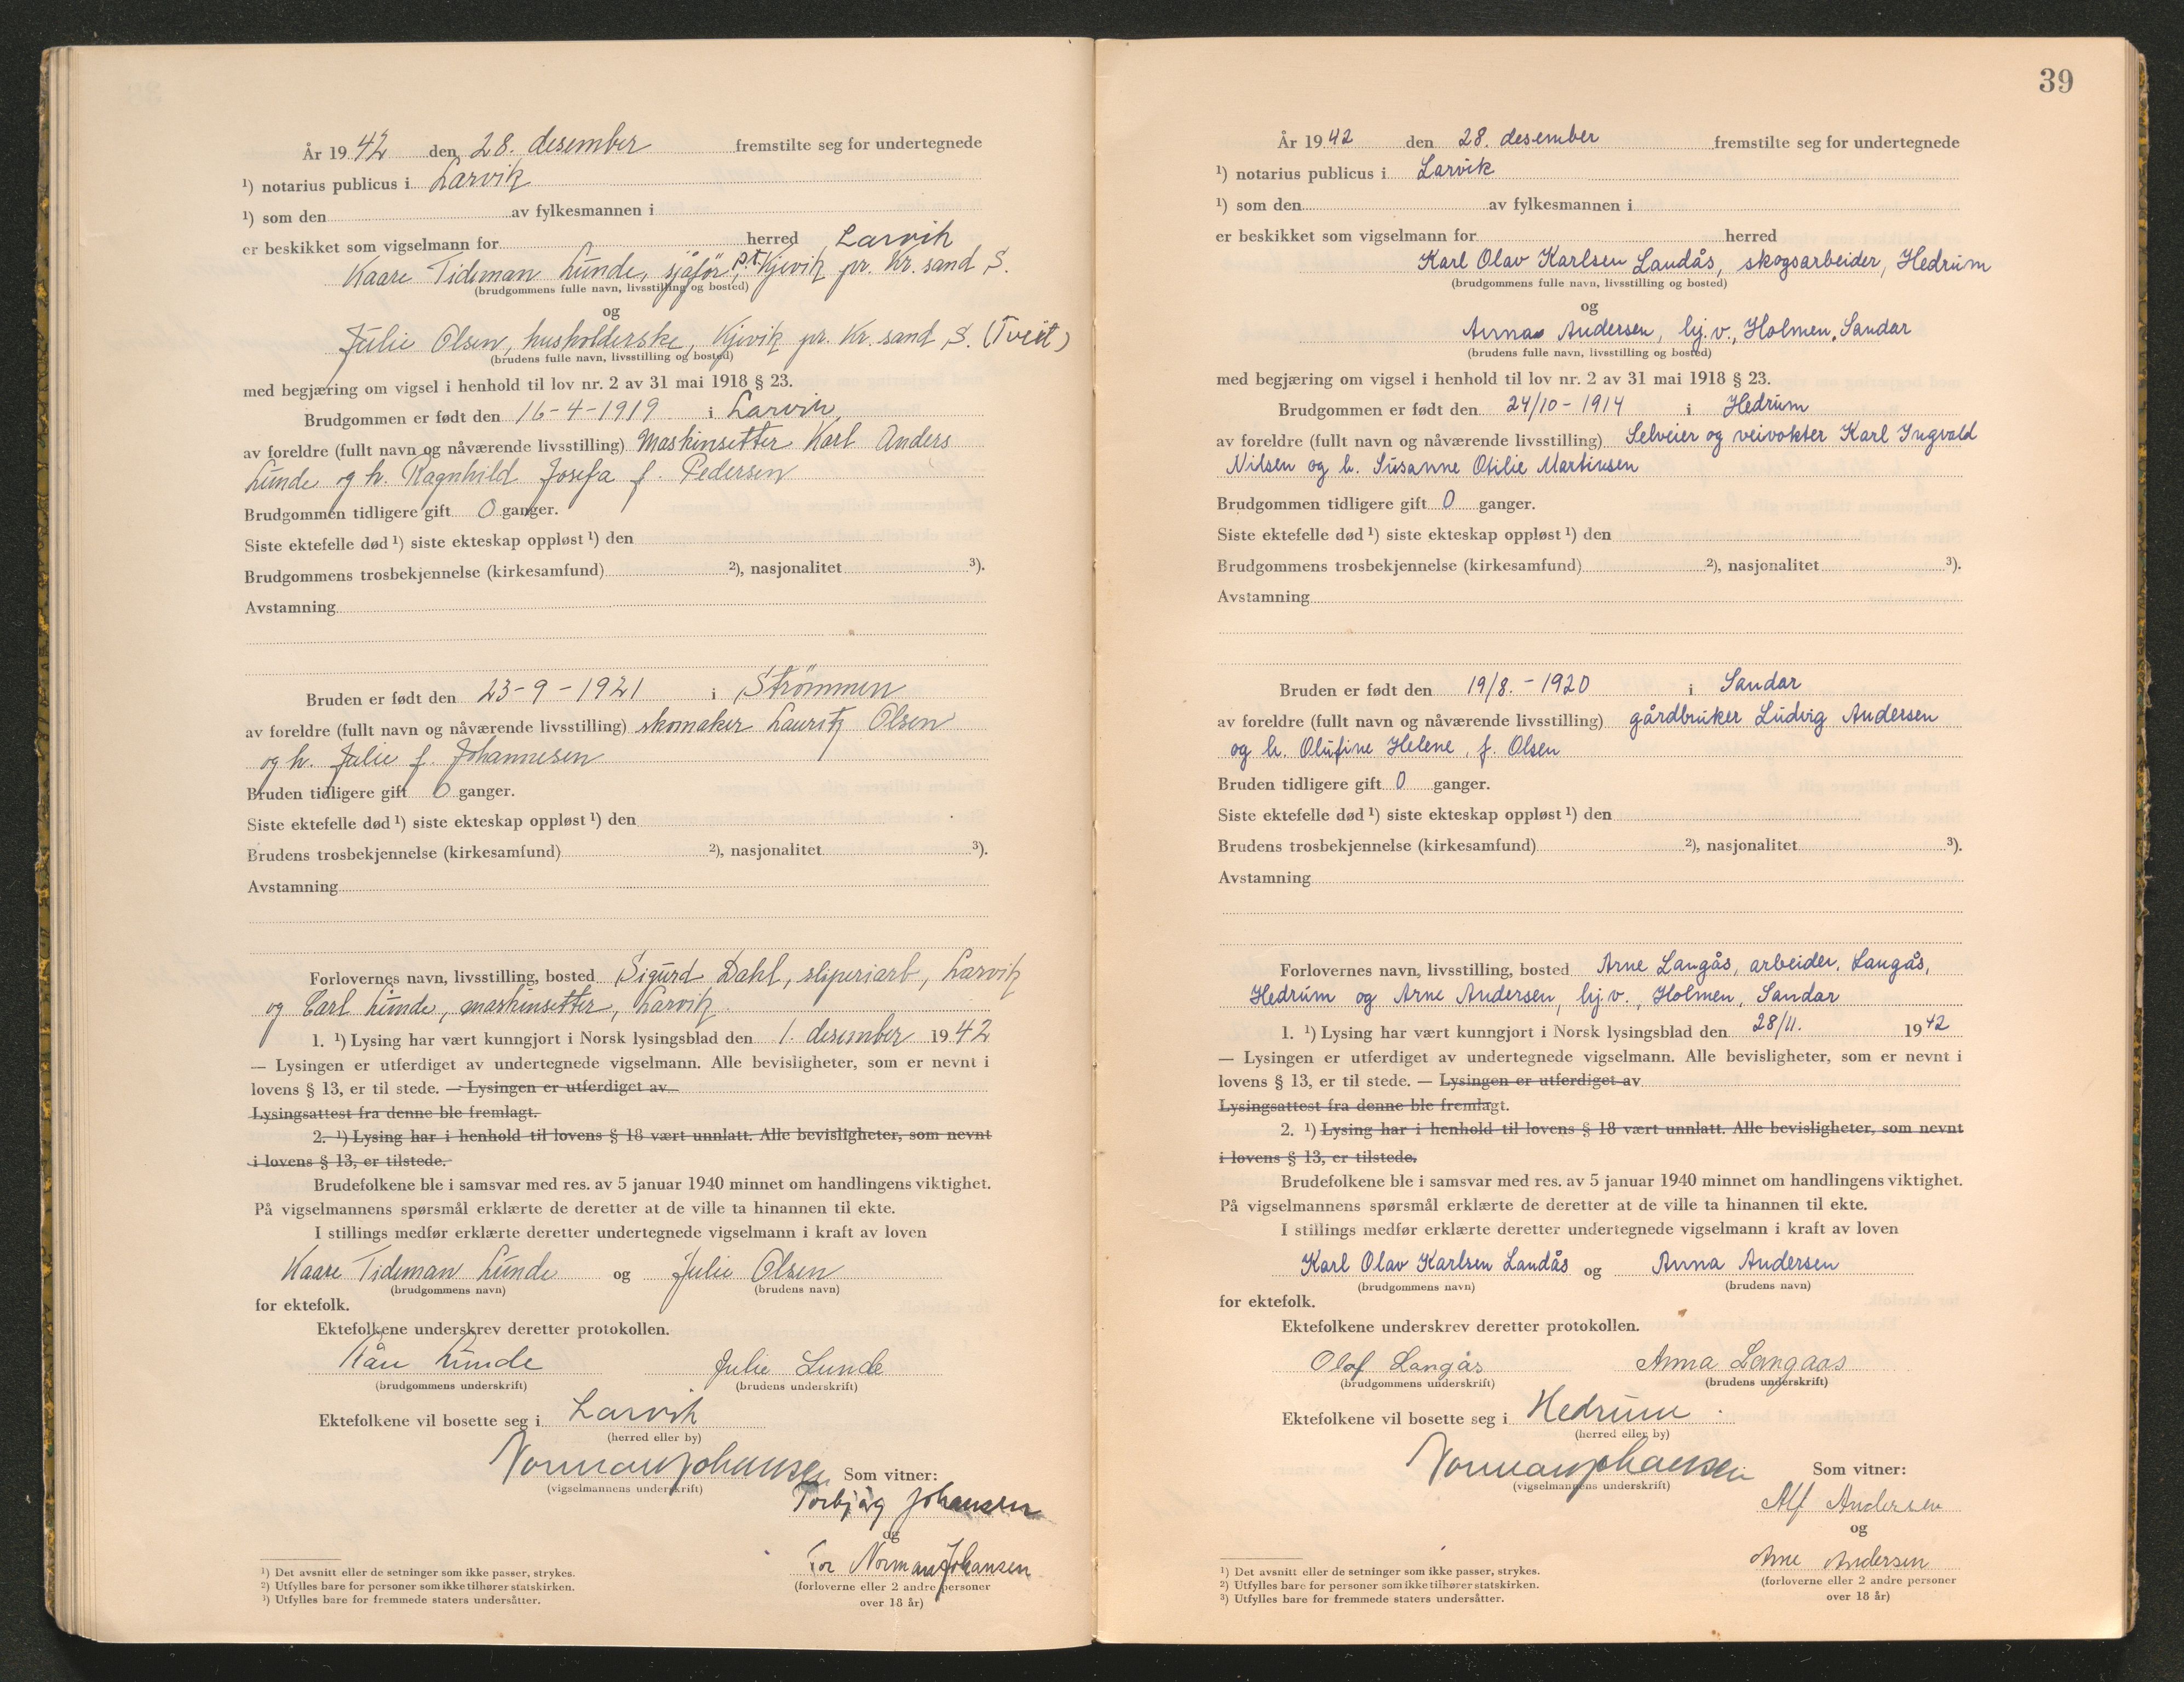 År 1942 den 28. desember fremstilte seg for undertegnede
¹) notarius publicus i Larvik
¹) som den av fylkesmannen i
er beskikket som vigselmann for herred Larvik
Kaare Tideman Lunde, sjåfør, p.t. Kjevik pr. Kr. sand S.
(brudgommens fulle navn, livsstilling og bosted)
og
Julie Olsen, husholderske, Kjevik pr. Kr. sand S. (Tveit)
(brudens fulle navn, livsstilling og bosted)
med begjæring om vigsel i henhold til lov nr. 2 av 31 mai 1918 § 23.
Brudgommen er født den 16-4-1919 i Larvik,
av foreldre (fullt navn og nåværende livsstilling) Maskinsetter Karl Anders
Lunde og h. Ragnhild Josefa f. Pedersen
Brudgommen tidligere gift 0 ganger.
Siste ektefelle død ¹) siste ekteskap oppløst ¹) den
Brudgommens trosbekjennelse (kirkesamfund) ²), nasjonalitet ³).
Avstamning
Bruden er født den 23-9-1921 i Strømmen
av foreldre (fullt navn og nåværende livsstilling) skomaker Lauritz Olsen
og h. Julie f. Johannesen
Bruden tidligere gift 0 ganger.
Siste ektefelle død ¹) siste ekteskap oppløst ¹) den
Brudens trosbekjennelse (kirkesamfund) ²), nasjonalitet ³).
Avstamning
Forlovernes navn, livsstilling, bosted Sigurd Dahl, sliperiarb., Larvik
og Carl Lunde, maskinsetter, Larvik.
1. ¹) Lysing har vært kunngjort i Norsk lysingsblad den 1. desember 1942
— Lysingen er utferdiget av undertegnede vigselmann. Alle bevisligheter, som er nevnt i
lovens § 13, er til stede. — Lysingen er utferdiget av
Lysingsattest fra denne ble fremlagt.
2. ¹) Lysing har i henhold til lovens § 18 vært unnlatt. Alle bevisligheter, som nevnt
i lovens § 13, er tilstede.
Brudefolkene ble i samsvar med res. av 5 januar 1940 minnet om handlingens viktighet.
På vigselmannens spørsmål erklærte de deretter at de ville ta hinannen til ekte.
I stillings medfør erklærte deretter undertegnede vigselmann i kraft av loven
Kaare Tideman Lunde og Julie Olsen
(brudgommens navn) (brudens navn)
for ektefolk.
Ektefolkene underskrev deretter protokollen.
Kåre Lunde Julie Lunde
(brudgommens underskrift) (brudens underskrift)
Ektefolkene vil bosette seg i Larvik
(herred eller by)
Norman Johansen Som vitner:
(vigselmannens underskrift)
Torbjørg Johansen
og
Tor Norman Johansen
(forloverne eller 2 andre personer
over 18 år)
¹) Det avsnitt eller de setninger som ikke passer, strykes.
²) Utfylles bare for personer som ikke tilhører statskirken.
³) Utfylles bare for fremmede staters undersåtter.
39
År 1942 den 28. desember fremstilte seg for undertegnede
¹) notarius publicus i Larvik
¹) som den av fylkesmannen i
er beskikket som vigselmann for herred
Karl Olav Karlsen Landås, skogsarbeider, Hedrum
(brudgommens fulle navn, livsstilling og bosted)
og
Anna Andersen, hj.v., Holmen, Sandar
(brudens fulle navn, livsstilling og bosted)
med begjæring om vigsel i henhold til lov nr. 2 av 31 mai 1918 § 23.
Brudgommen er født den 24/10-1914 i Hedrum
av foreldre (fullt navn og nåværende livsstilling) Selveier og veivokter Karl Ingvald
Nilsen og h. Susanne Otilie Martinsen
Brudgommen tidligere gift 0 ganger.
Siste ektefelle død ¹) siste ekteskap oppløst ¹) den
Brudgommens trosbekjennelse (kirkesamfund) ²), nasjonalitet ³).
Avstamning
Bruden er født den 19/8.-1920 i Sandar
av foreldre (fullt navn og nåværende livsstilling) gårdbruker Ludvig Andersen
og h. Olufine Helene, f. Olsen
Bruden tidligere gift 0 ganger.
Siste ektefelle død ¹) siste ekteskap oppløst ¹) den
Brudens trosbekjennelse (kirkesamfund) ²), nasjonalitet ³).
Avstamning
Forlovernes navn, livsstilling, bosted Arne Langås, arbeider, Langås,
Hedrum og Arne Andersen, hj.v., Holmen, Sandar
1. ¹) Lysing har vært kunngjort i Norsk lysingsblad den 28/11. 1942
— Lysingen er utferdiget av undertegnede vigselmann. Alle bevisligheter, som er nevnt i
lovens § 13, er til stede. — Lysingen er utferdiget av
Lysingsattest fra denne ble fremlagt.
2. ¹) Lysing har i henhold til lovens § 18 vært unnlatt. Alle bevisligheter, som nevnt
i lovens § 13, er tilstede.
Brudefolkene ble i samsvar med res. av 5 januar 1940 minnet om handlingens viktighet.
På vigselmannens spørsmål erklærte de deretter at de ville ta hinannen til ekte.
I stillings medfør erklærte deretter undertegnede vigselmann i kraft av loven
Karl Olav Karlsen Landås og Anna Andersen
(brudgommens navn) (brudens navn)
for ektefolk.
Ektefolkene underskrev deretter protokollen.
Olaf Langås Anna Langaas
(brudgommens underskrift) (brudens underskrift)
Ektefolkene vil bosette seg i Hedrum
(herred eller by)
Norman Johansen Som vitner:
(vigselmannens underskrift)
Alf Andersen
og
Arne Andersen
(forloverne eller 2 andre personer
over 18 år)
¹) Det avsnitt eller de setninger som ikke passer, strykes.
²) Utfylles bare for personer som ikke tilhører statskirken.
³) Utfylles bare for fremmede staters undersåtter.